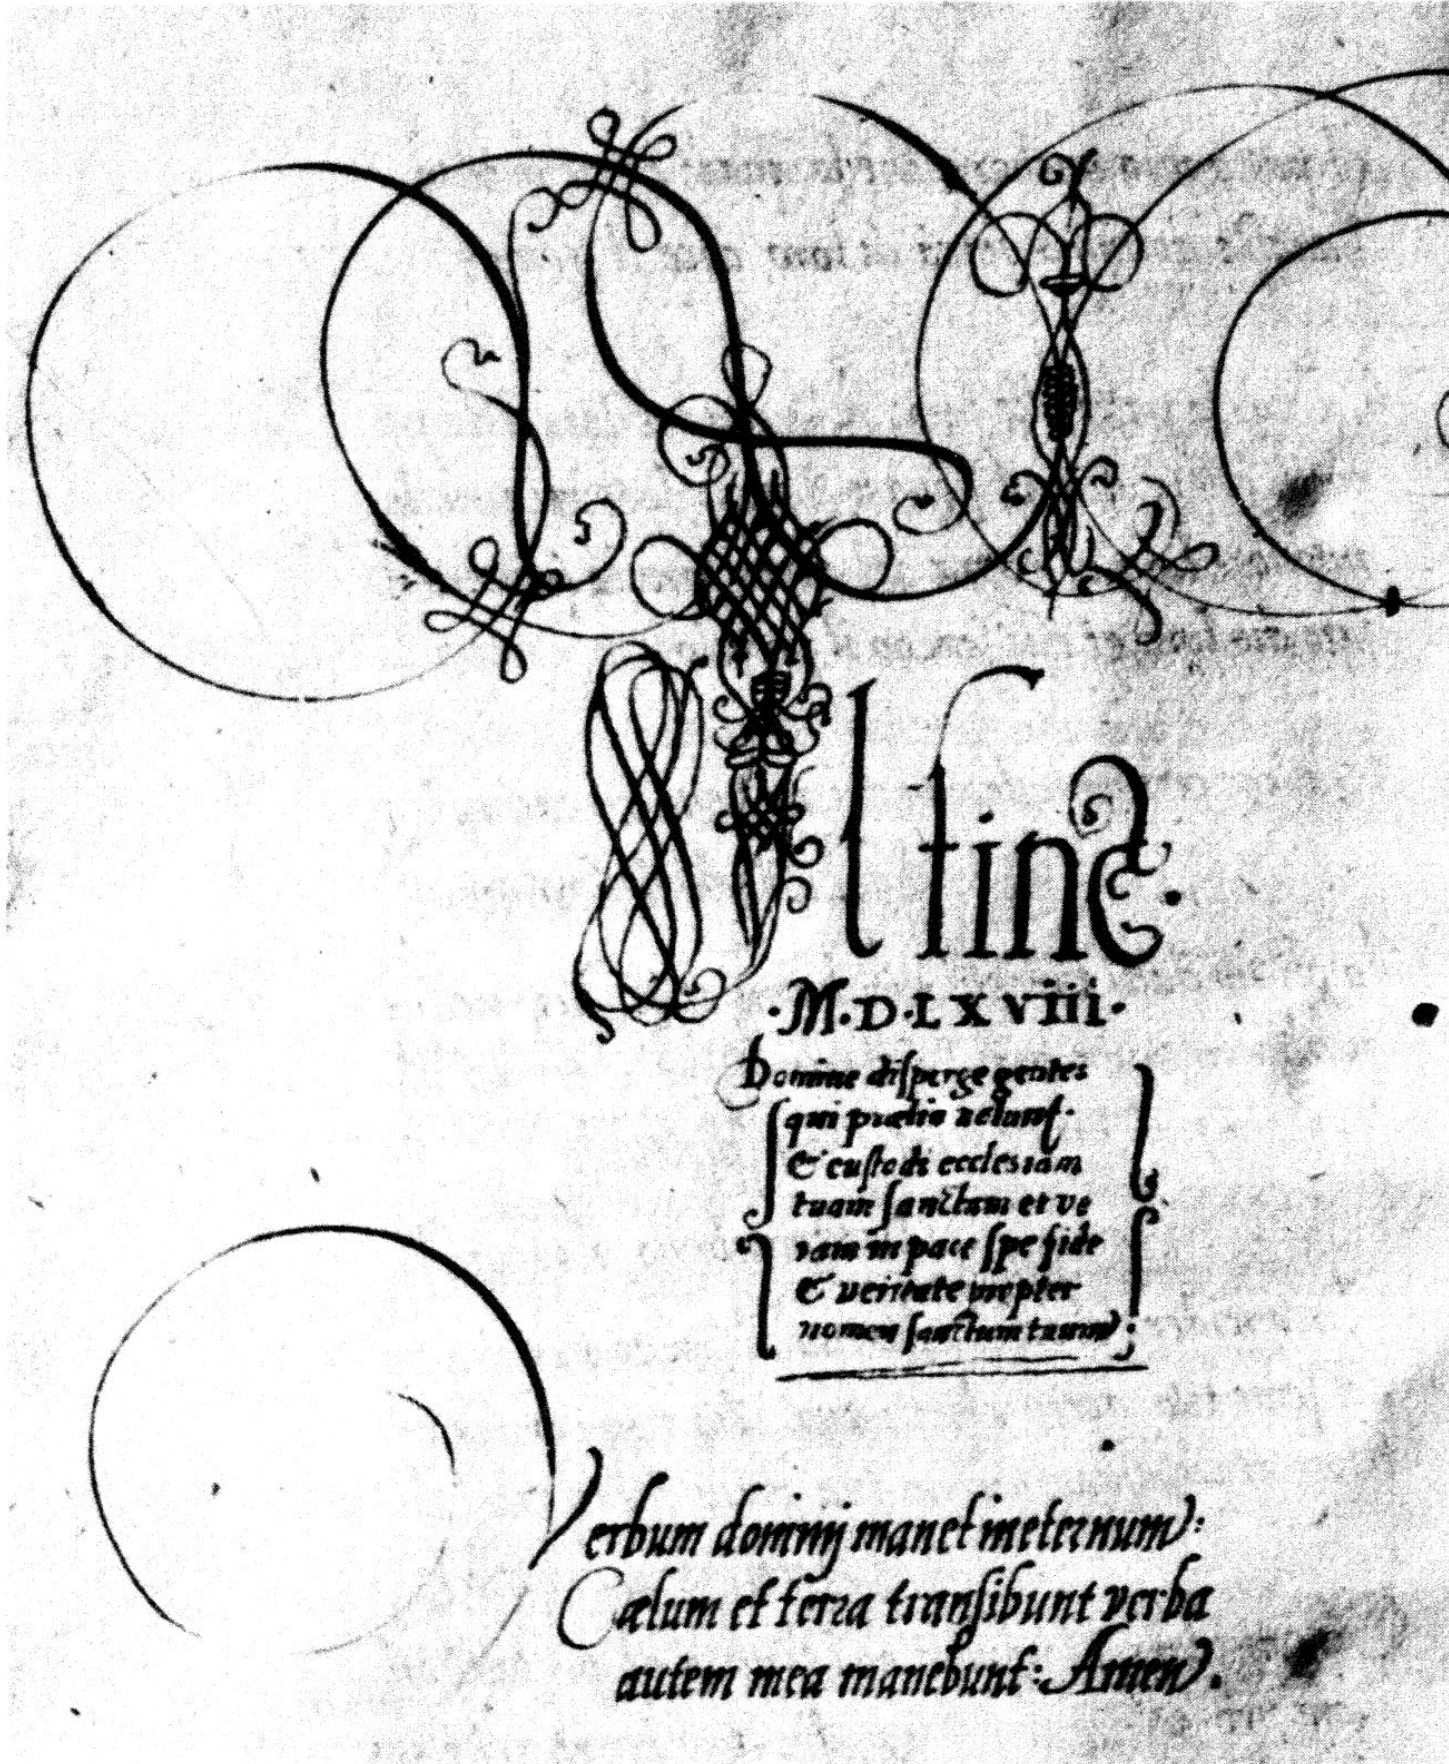 Il fine.
·M·D·LXVIII·
Domine disperge gentes
qui prælia uolunt.
& custodi ecclesiam
tuam sanctam et ve
ram in pace spe fide
& veritate propter
nomen sanctum tuum:
Verbum dominij manet ineternum:
Cælum et terra transibunt verba
autem mea manebunt: Amen.